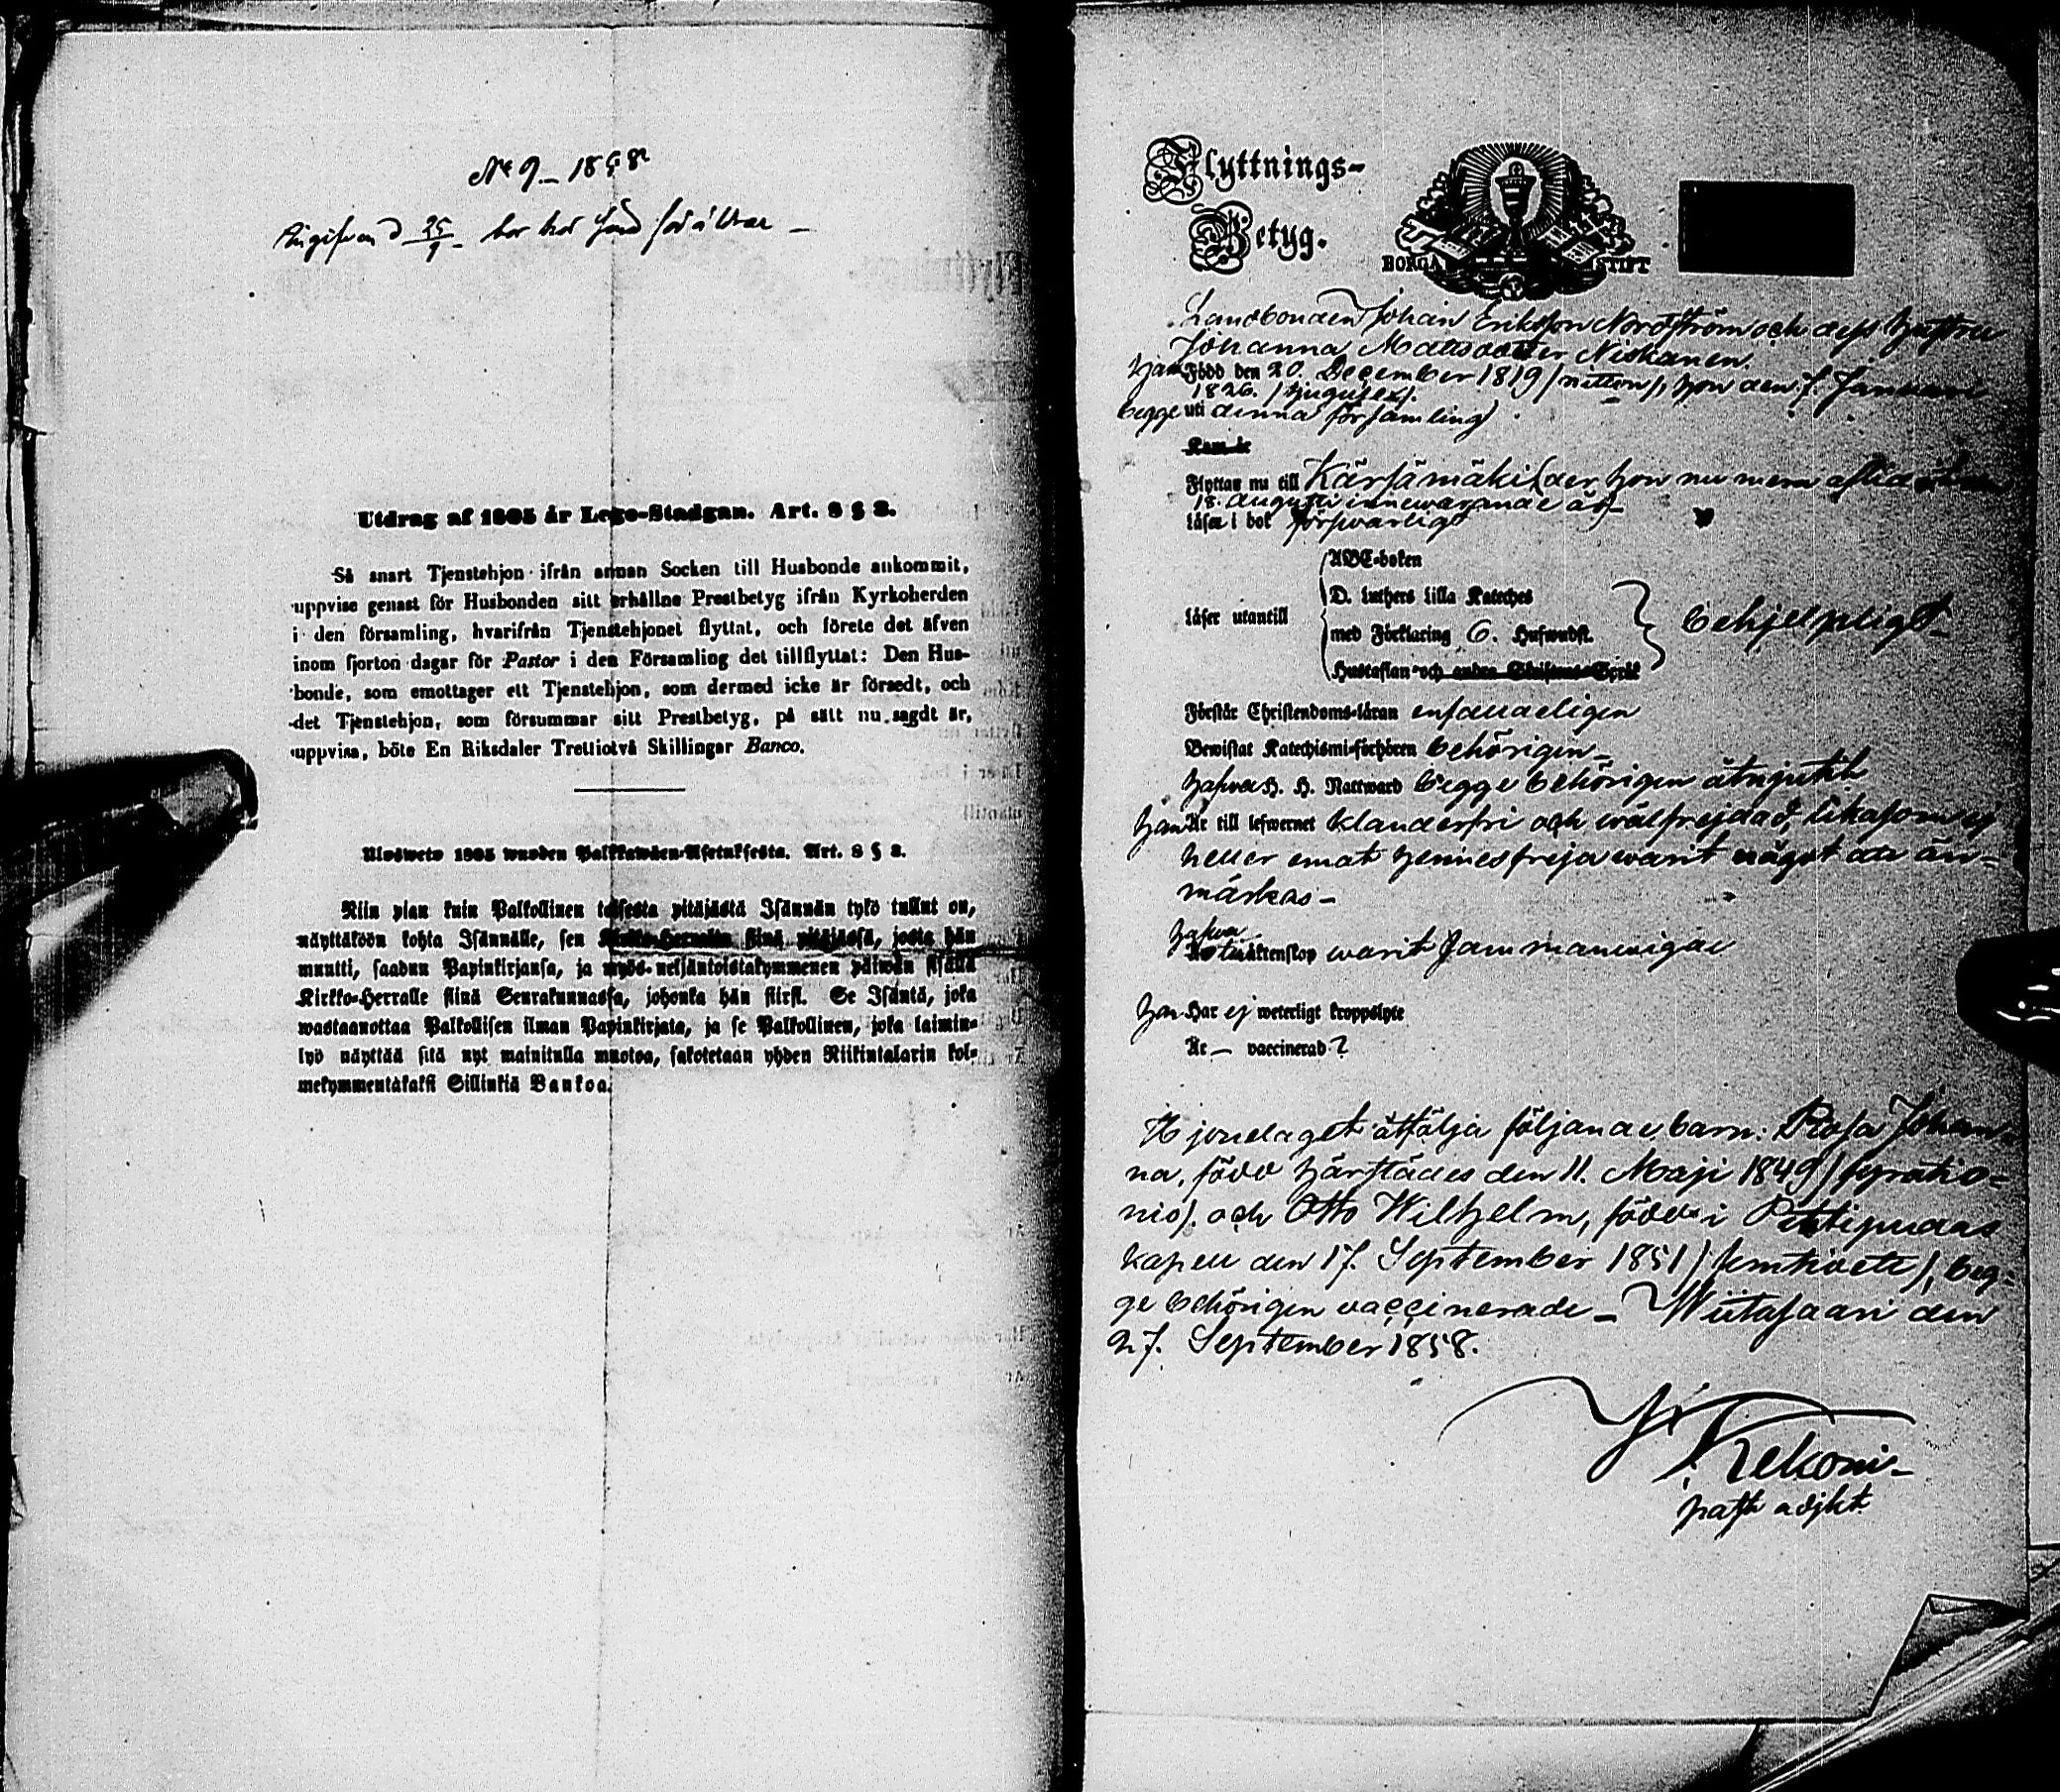 No 9.– 1858
25/9
Utdrag af 1805 år Lego-Stadgan. Art. 8 § 3.
Så snart Tjenstehjon ifrån annan Socken till Husbonde ankommit,
uppvise genast för Husbonden sitt erhållne Prestbetyg ifrån Kyrkoherden
i den församling, hvarifrån Tjenstehjonet flyttat, och förete det äfven
inom fjorton dagar för Pastor i den Församling det tillflyttat: Den Hus-
bonde, som emottager ett Tjenstehjon, som dermed icke är försedt, och
det Tjenstehjon, som försummar sitt Prestbetyg, på sätt nu sagdt är,
uppvisa, böte En Riksdaler Trettiotvå Skillingar Banco.
Ulosweto 1805 wuoden Palkkawäen-Asetuksesta. Art. 8 § 3.
Niin pian kuin Palkollinen toisesta pitäjästä Isännän tykö tullut on,
näyttäköön kohta Isännälle, sen Kirkko-Herralta siinä pitäjässä, josta hän
muutti, saadun Papinkirjansa, ja myös neljäntoistakymmenen päiwän sisällä
Kirkko-Herralle siinä Seurakunnassa, johonka hän siirsi. Se Isäntä, joka
wastaanottaa Palkollisen ilman Papinkirjata, ja se Palkollinen, joka laimin-
lyö näyttää sitä nyt mainitulla muotoa, sakotetaan yhden Riikintalarin kol-
mekymmentäkaksi Sillinkiä Bankoa.
Flyttnings-
Betyg.
BORGÅ STIFT
Landbonden Johan Eriksson Nordström och dess hustru
Johanna Matsdotter Niskanen.
han Född den 20. December 1819 /nitton/, hon den 7. Januari
1826. /tjugusex/.
begge uti denna församling
Kom år
Flyttar nu till Kärsämäki (der hon nu mera aflidit den
18. Augusti innewarande år)
läser i bok försvarligt
ABC-boken
D. Luthers lilla Kateches
läser utantill
med Förklaring 6. Hufwudst.
Hustaflan och andra Skriftens Språk
behjelpligt
Förstår Christendoms-läran enfaldeligen
Bewistat Katechismi-förhören behörigen –
hafwa H. H. Nattward begge behörigen åtnjutit
han Är till lefwernet klanderfri och wälfrejdad, likasom ej
heller emot hennes frejd warit något att an=
märkas –
hafwa
Äktenskap warit sammanwigde
han Har ej weterligt kroppslyte
Är — vaccinerad ?
Hjonelaget åtfölja följande barn: Rosa Johan=
na, född härstädes den 11. Maji 1849 /fyratio=
nio/. och Otto Wilhelm, född i Pihtipudas
kapell den 17. September 1851 /femtioett/, beg=
ge behörigen vaccinerade – Wiitasaari den
27. September 1858.
past adjkt.